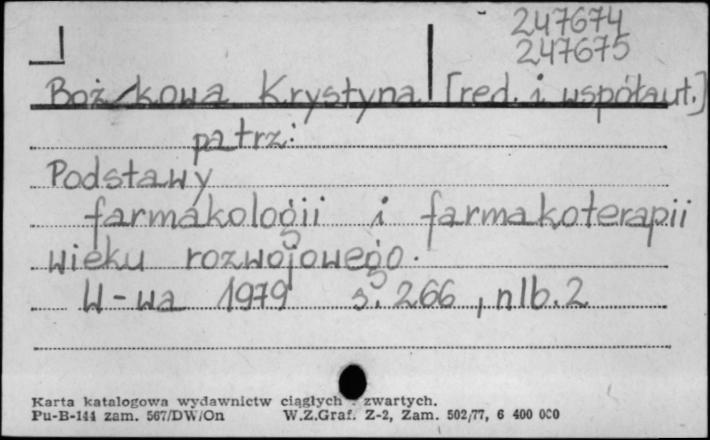 247674
247675
Bożkowa Krystyna [red. i współaut.]
patrz:
Podstawy
farmakologii i farmakoterapii
wieku rozwojowego.
W-wa 1979 s. 266, nlb. 2
Karta katalogowa wydawnictw ciągłych zwartych.
Pu-B-144 zam. 567/DW/On W.Z.Graf. Z-2, Zam. 502/77, 6 400 000